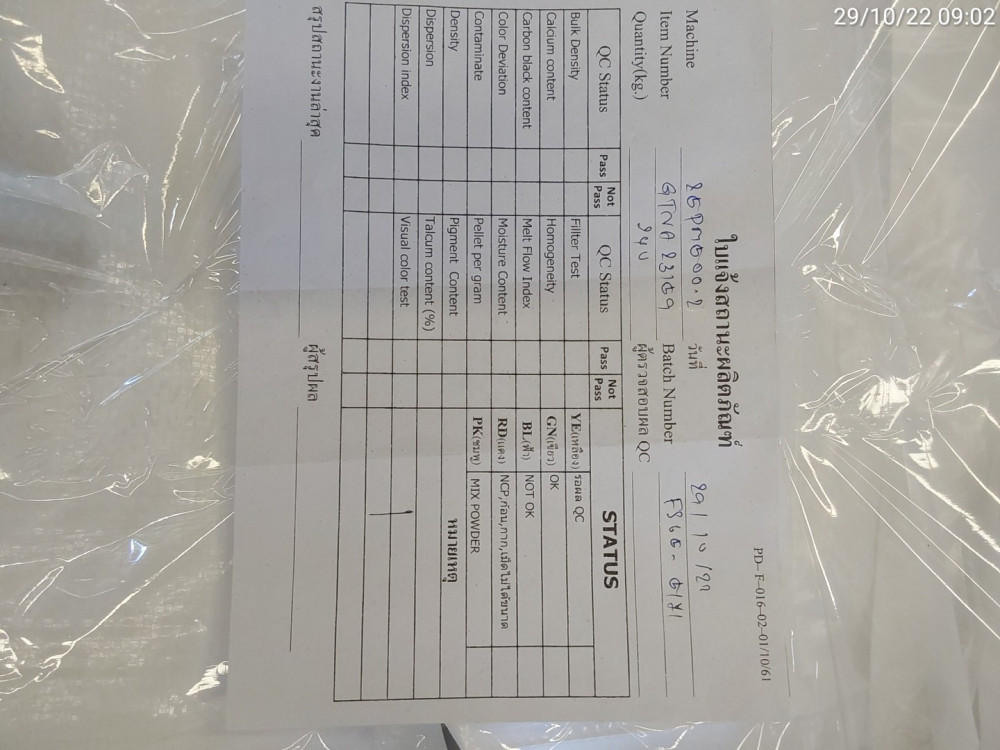 29/10/22 09:02
PD-F-016-02-01/10/61
ใบแจ้งสถานะผลิตภัณฑ์
Machine วันที่ 29/10/22
Item Number Batch Number
Quantity(kg.) ผู้ตรวจสอบผล QC
QC Status Pass Not Pass QC Status Pass Not Pass STATUS
Bulk Density Fillter Test YE(เหลือง) รอผล QC
Calcium content Homogeneity GN(เขียว) OK
Carbon black content Melt Flow Index BL(ฟ้า) NOT OK
Color Deviation Moisture Content RD(แดง) NCP,ก้อน,กาก,เม็ดไม่ได้ขนาด
Contaminate Pellet per gram PK(ชมพู) MIX POWDER
Density Pigment Content หมายเหตุ
Dispersion Talcum content (%)
Dispersion index Visual color test
สรุปสถานะงานล่าสุด ผู้สรุปผล